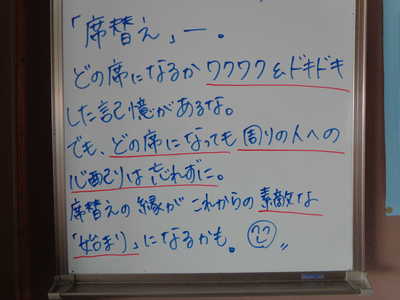 「席替え」ー。
どの席になるか ワクワク&ドキドキ
した記憶があるな。
でも、どの席になっても 周りの人への
心配りは忘れずに。
席替えの縁が これからの 素敵な
「始まり」になるかも。